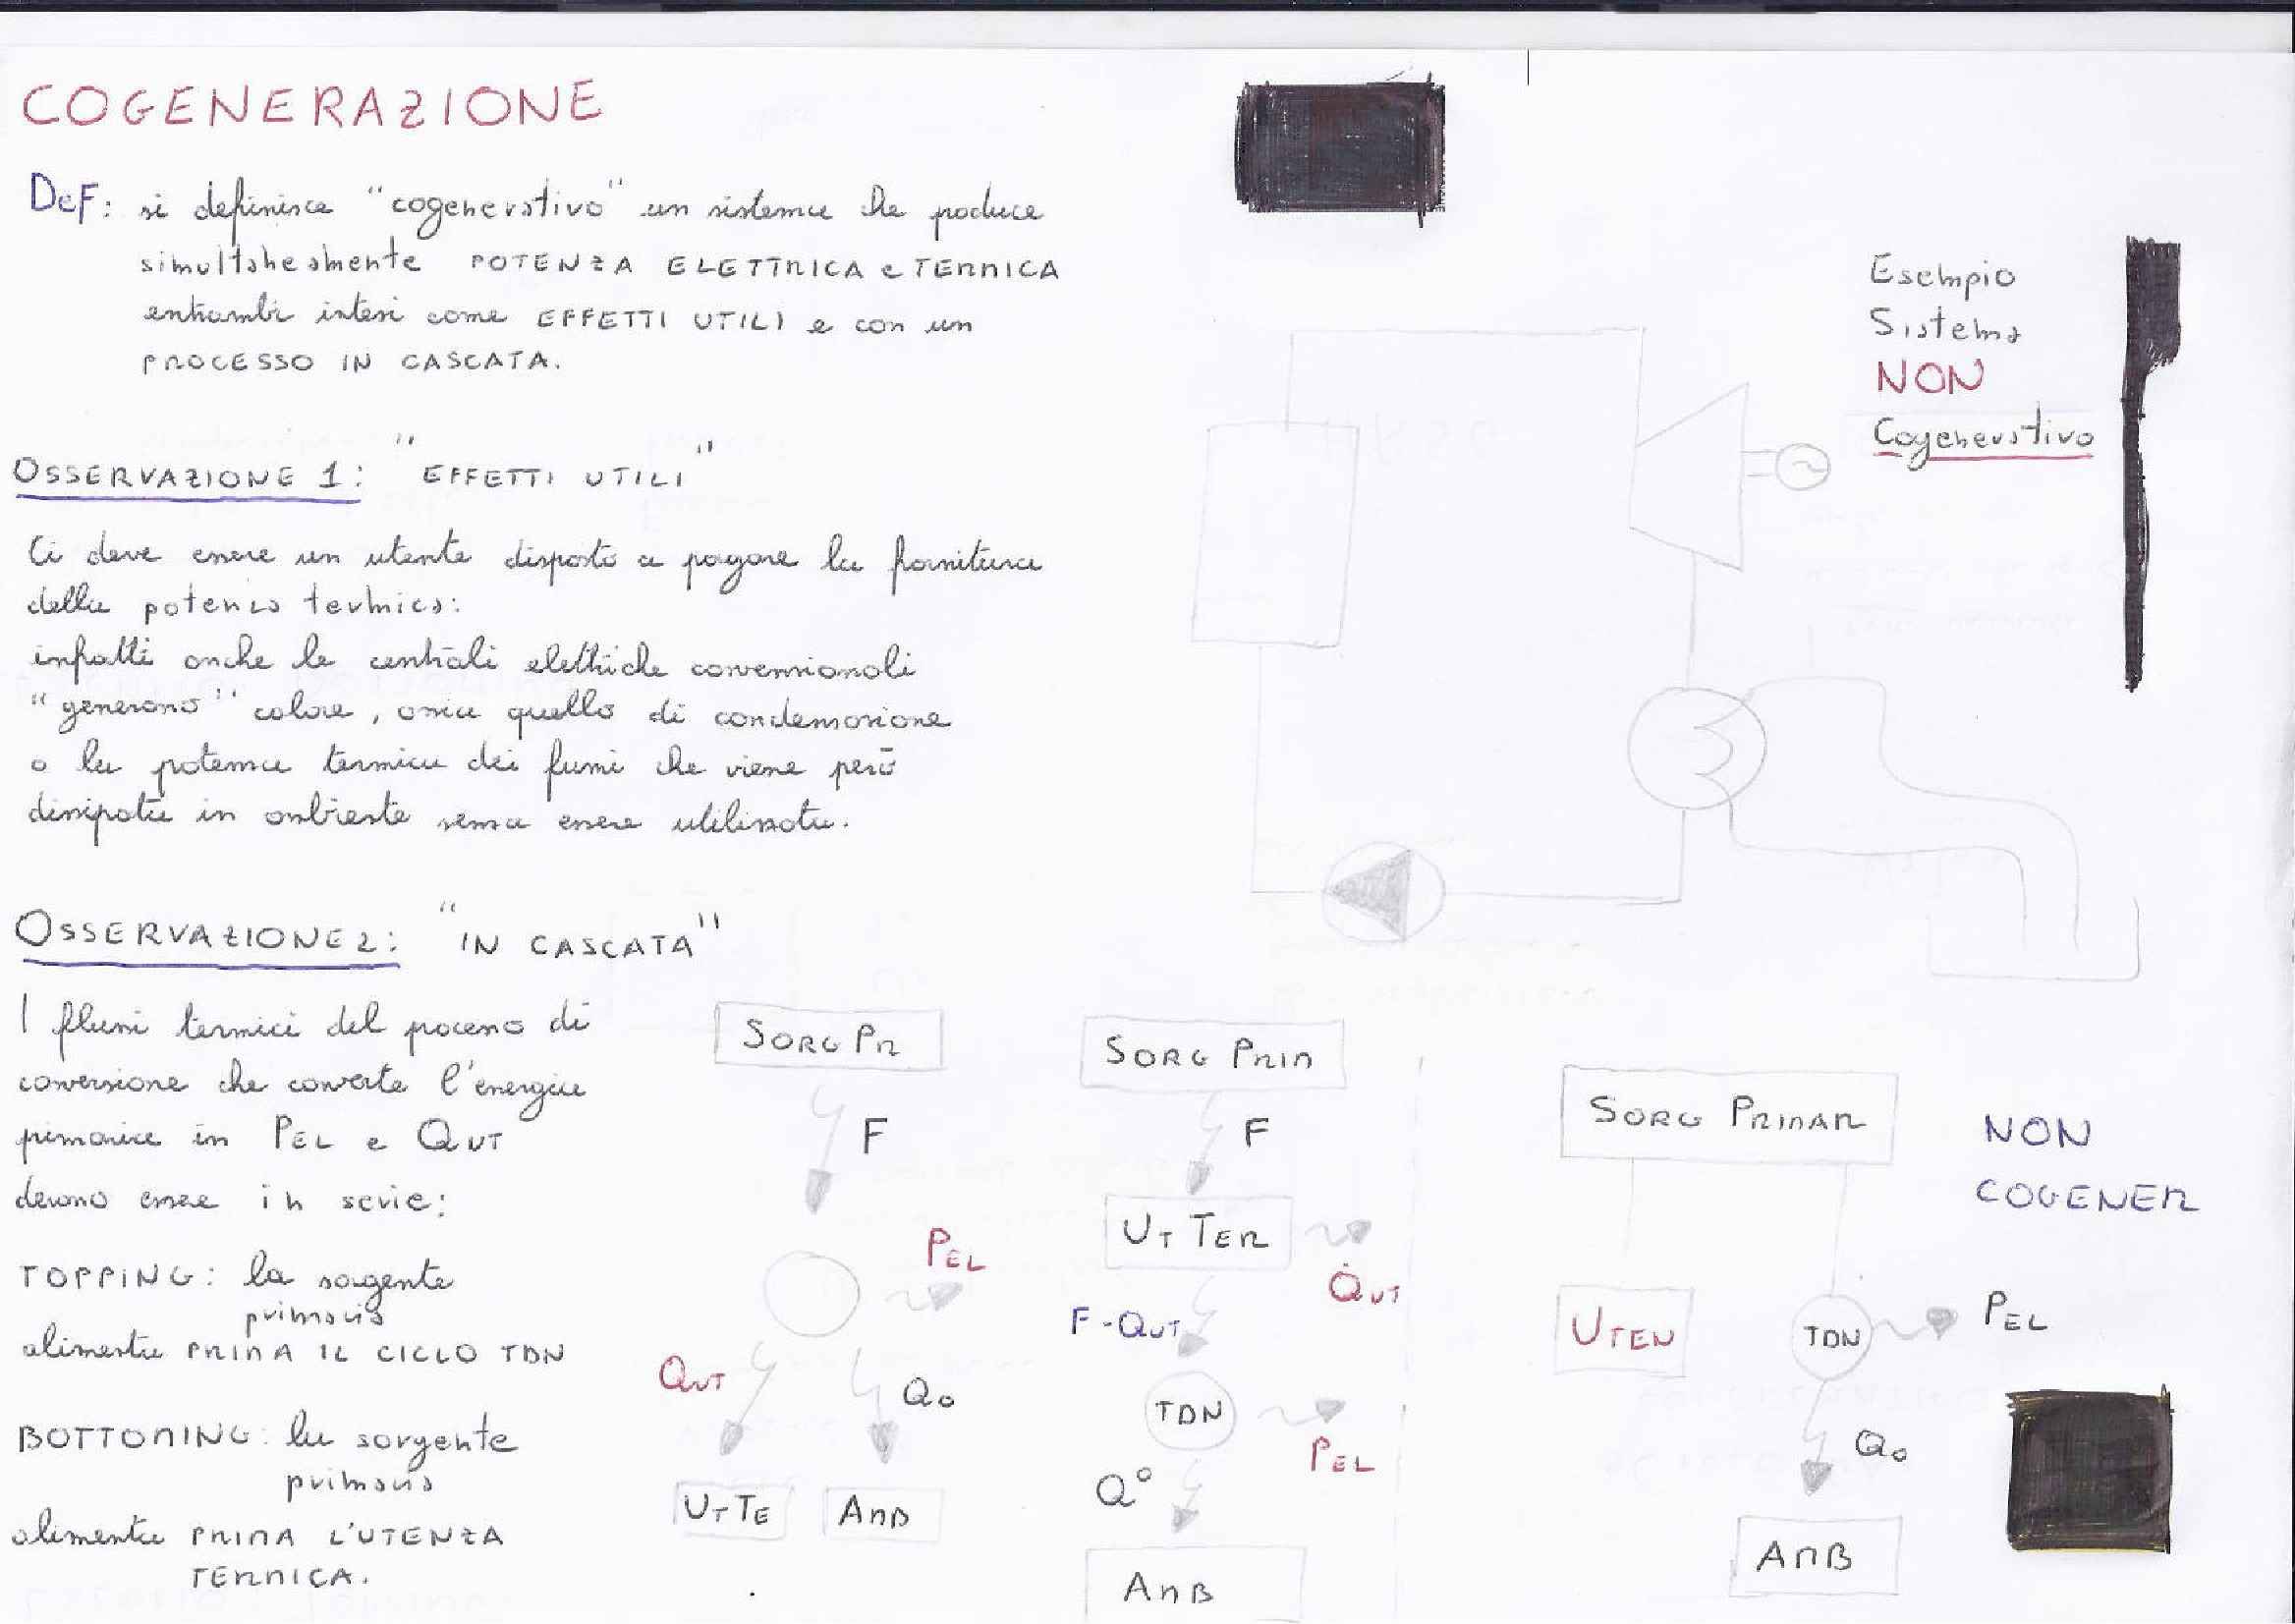 COGENERAZIONE
DEF: si definisce "cogenerativo" un sistema che produce
simultaneamente POTENZA ELETTRICA e TERMICA
entrambi intesi come EFFETTI UTILI e con un
PROCESSO IN CASCATA.
OSSERVAZIONE 1: "EFFETTI UTILI"
Ci deve essere un utente disposto a pagare la fornitura
della potenza termica:
infatti anche le centrali elettriche convenzionali
"generano" calore, ossia quello di condensazione
o la potenza termica dei fumi che viene però
dissipata in ambiente senza essere utilizzata.
OSSERVAZIONE 2: "IN CASCATA"
I flussi termici del processo di
conversione che converte l'energia
primaria in PEL e QUT
devono essere in serie:
TOPPING: la sorgente
primaria
alimenta PRIMA IL CICLO TDN
BOTTOMING: la sorgente
primaria
alimenta PRIMA L'UTENZA
TERMICA.
Esempio
Sistema
NON
Cogenerativo
SORG PR
F
PEL
QUT
Q0
UT TE
AMB
SORG PRIM
F
UT TER
QUT
F-QUT
TDN
PEL
Q0
AMB
SORG PRIMAR
NON
COGENER
UTEN
TDN
PEL
Q0
AMB